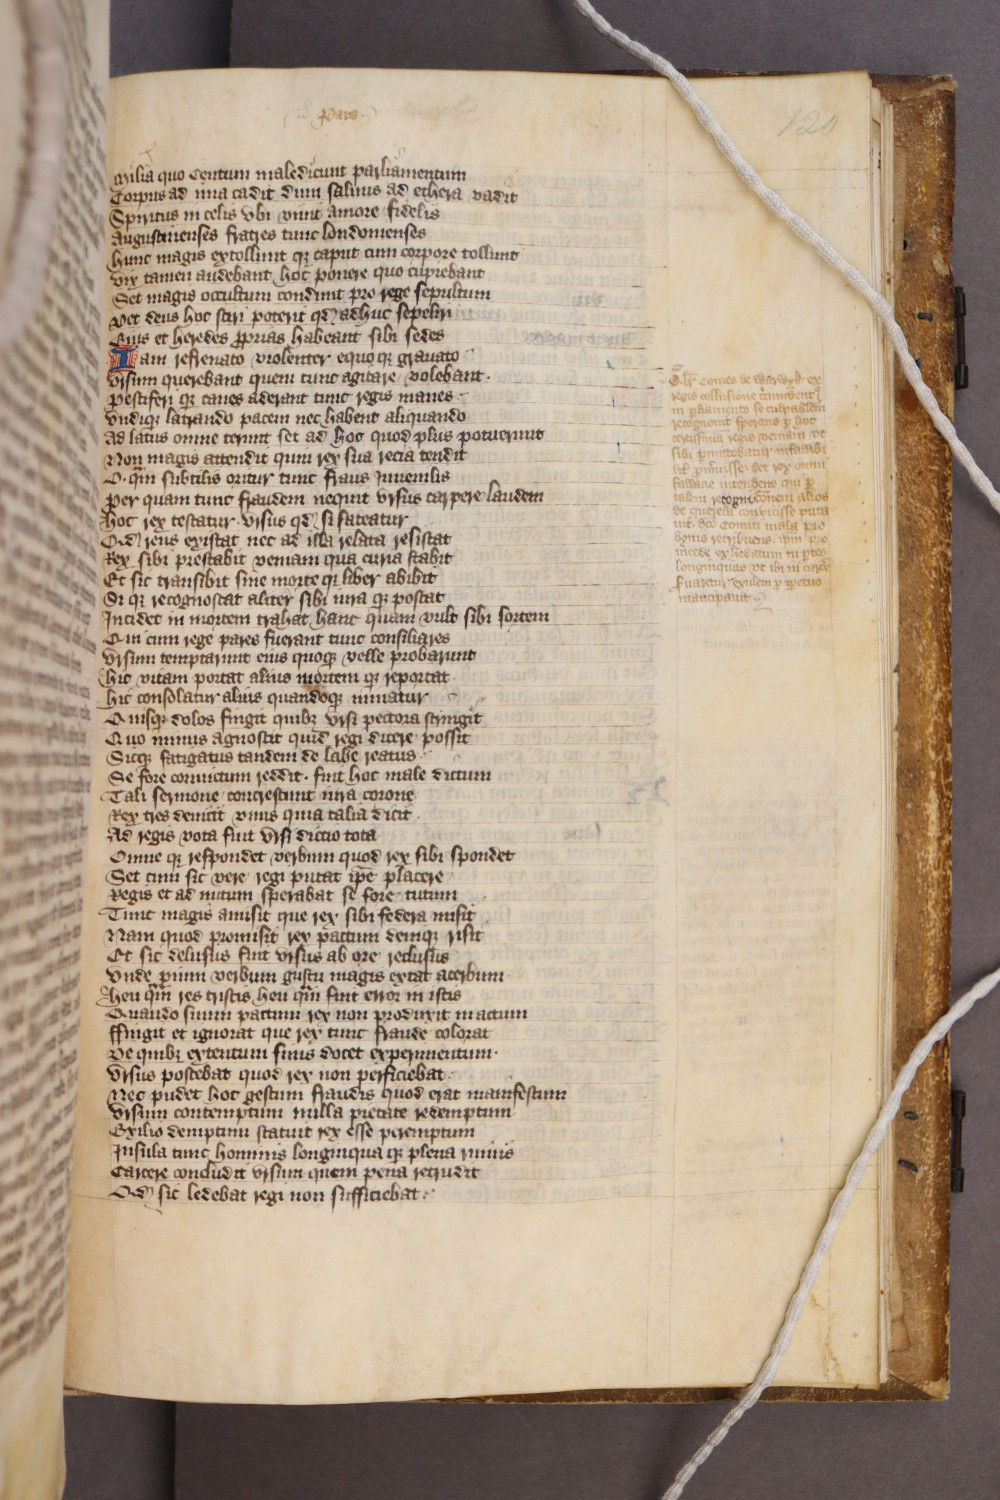 Pars
120
Milia quo Centum maledicunt parliamentum
Corpus ad ima cadit dum saluus ad ethera vadit
Spiritus in celis vbi viuit amore fidelis
Augustinenses fratres tunc londonienses
Hunc magis extollunt qꝫ caput cum corpore tollunt
Vix tamen audebant hoc ponere quo cupiebant
Set magis occultum condunt pro rege sepultum
Vet deus hoc sciri poterit qd adhuc sepeliri
Eius et heredes ꝓprias habeant sibi sedes
Iam refrenato violenter equo qꝫ grauato
Vrsum querebant quem tunc agitare volebant
Pestiferi qꝫ canes aderant tunc regis inanes
Vndiqꝫ latrando pacem nec habent aliquando
Ad latus omne terunt set ad hoc quod plus potuerunt
Non magis attendit quin rex sua recia tendit
O qm̄ subtilis oritur tunc fraus Iuuenilis
Per quam tunc fraudem nequit vrsus carpere laudem
Hoc rex testatur vrsus qd si fateatur
Qd reus existat nec ad illa relata resistat
Rex sibi prestabit veniam qua curia stabit
Et sic transibit sine morte qꝫ liber abibit
Si qꝫ recognoscat aliter sibi iura qꝫ poscat
Incidet in mortem trahat hanc quam vult sibi sortem
Qui cum rege pares fuerant tunc consiliares
Vrsum temptarunt eius quoqꝫ velle probarunt
Hic vitam portat alius mortem qꝫ reportat
Hic consolatur alius quandoqꝫ minatur
Quisqꝫ dolos fingit quibꝫ vrsi pectora stringit
Quo minus agnoscit quid regi dicere possit
Sicqꝫ fatigatus tandem de labe reatus
Se fore conuictum reddit fuit hoc male dictum
Tali sermone concrescunt iura corone
Rex tres deuicit vnus quia talia dicit
Ad regis vota fuit vrsi dictio tota
Omne qꝫ respondet verbum quod rex sibi spondet
Set cum sic vere regi putat ip̄e placere
Regis et ad nutum sperabat se fore tutum
Tunc magis amisit que rex sibi federa misit
Nam quod promisit rex pactum deniqꝫ risit
Et sic delusus fuit vrsus ab ore reclusus
Vnde p̄mum verbum gustu magis extat acerbum
Heu qm̄ res tristis heu qm̄ fuit error in istis
Quando suum pactum rex non produxit in actum
Ffingit et ignorat que rex tunc fraude colorat
De quibꝫ extentum finis docet experimentum
Vrsus poscebat quod rex non perficiebat
Nec pudet hoc gestum fraudis quod erat manifestum
Vrsum contemptum nulla pietate redemptum
Exilio demptum statuit rex esse peremptum
Insula tunc hominis longinqua qꝫ plena ruinis
Carcere concludit vrsum quem pena retrudit
Qd sic ledebat regi non sufficiebat
Qlr Comes de Warwyk ex
regis collusione
in parliamento se culpabilem
recognouit sperans p̄ hoc
certissima regis veniam vt
sibi
Set rex omni
fallacie intendens qui per
talem recognicōnem alios
de querela conuicisse puta
uit. dc̄o Comiti mala pro
bonis retribuens. ipm̄ pro
inde exheredatum in ptes
longinquas vt ibi in carce
exilem p̄ ꝑpetuo
mancipauit